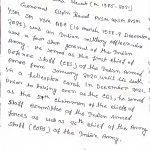 General Bipin Rawat PVSM UYSM AVSM
YSM SM VSM ADC (16 March 1958 - 8 December
2021) was an Indian military officer who
was a four star general of the Indian
Army. He served as the first chief of
defence staff (CDS) of the Indian Armed
Forces from January 2020 until his death
in a helicopter crash in December 2021.
Prior to taking over as the CDS, he served
as the 57th chairman of the chiefs of
staff committee of the Indian Armed
forces as well as 26th chief of the Army
Staff (COAS) of the Indian Army.